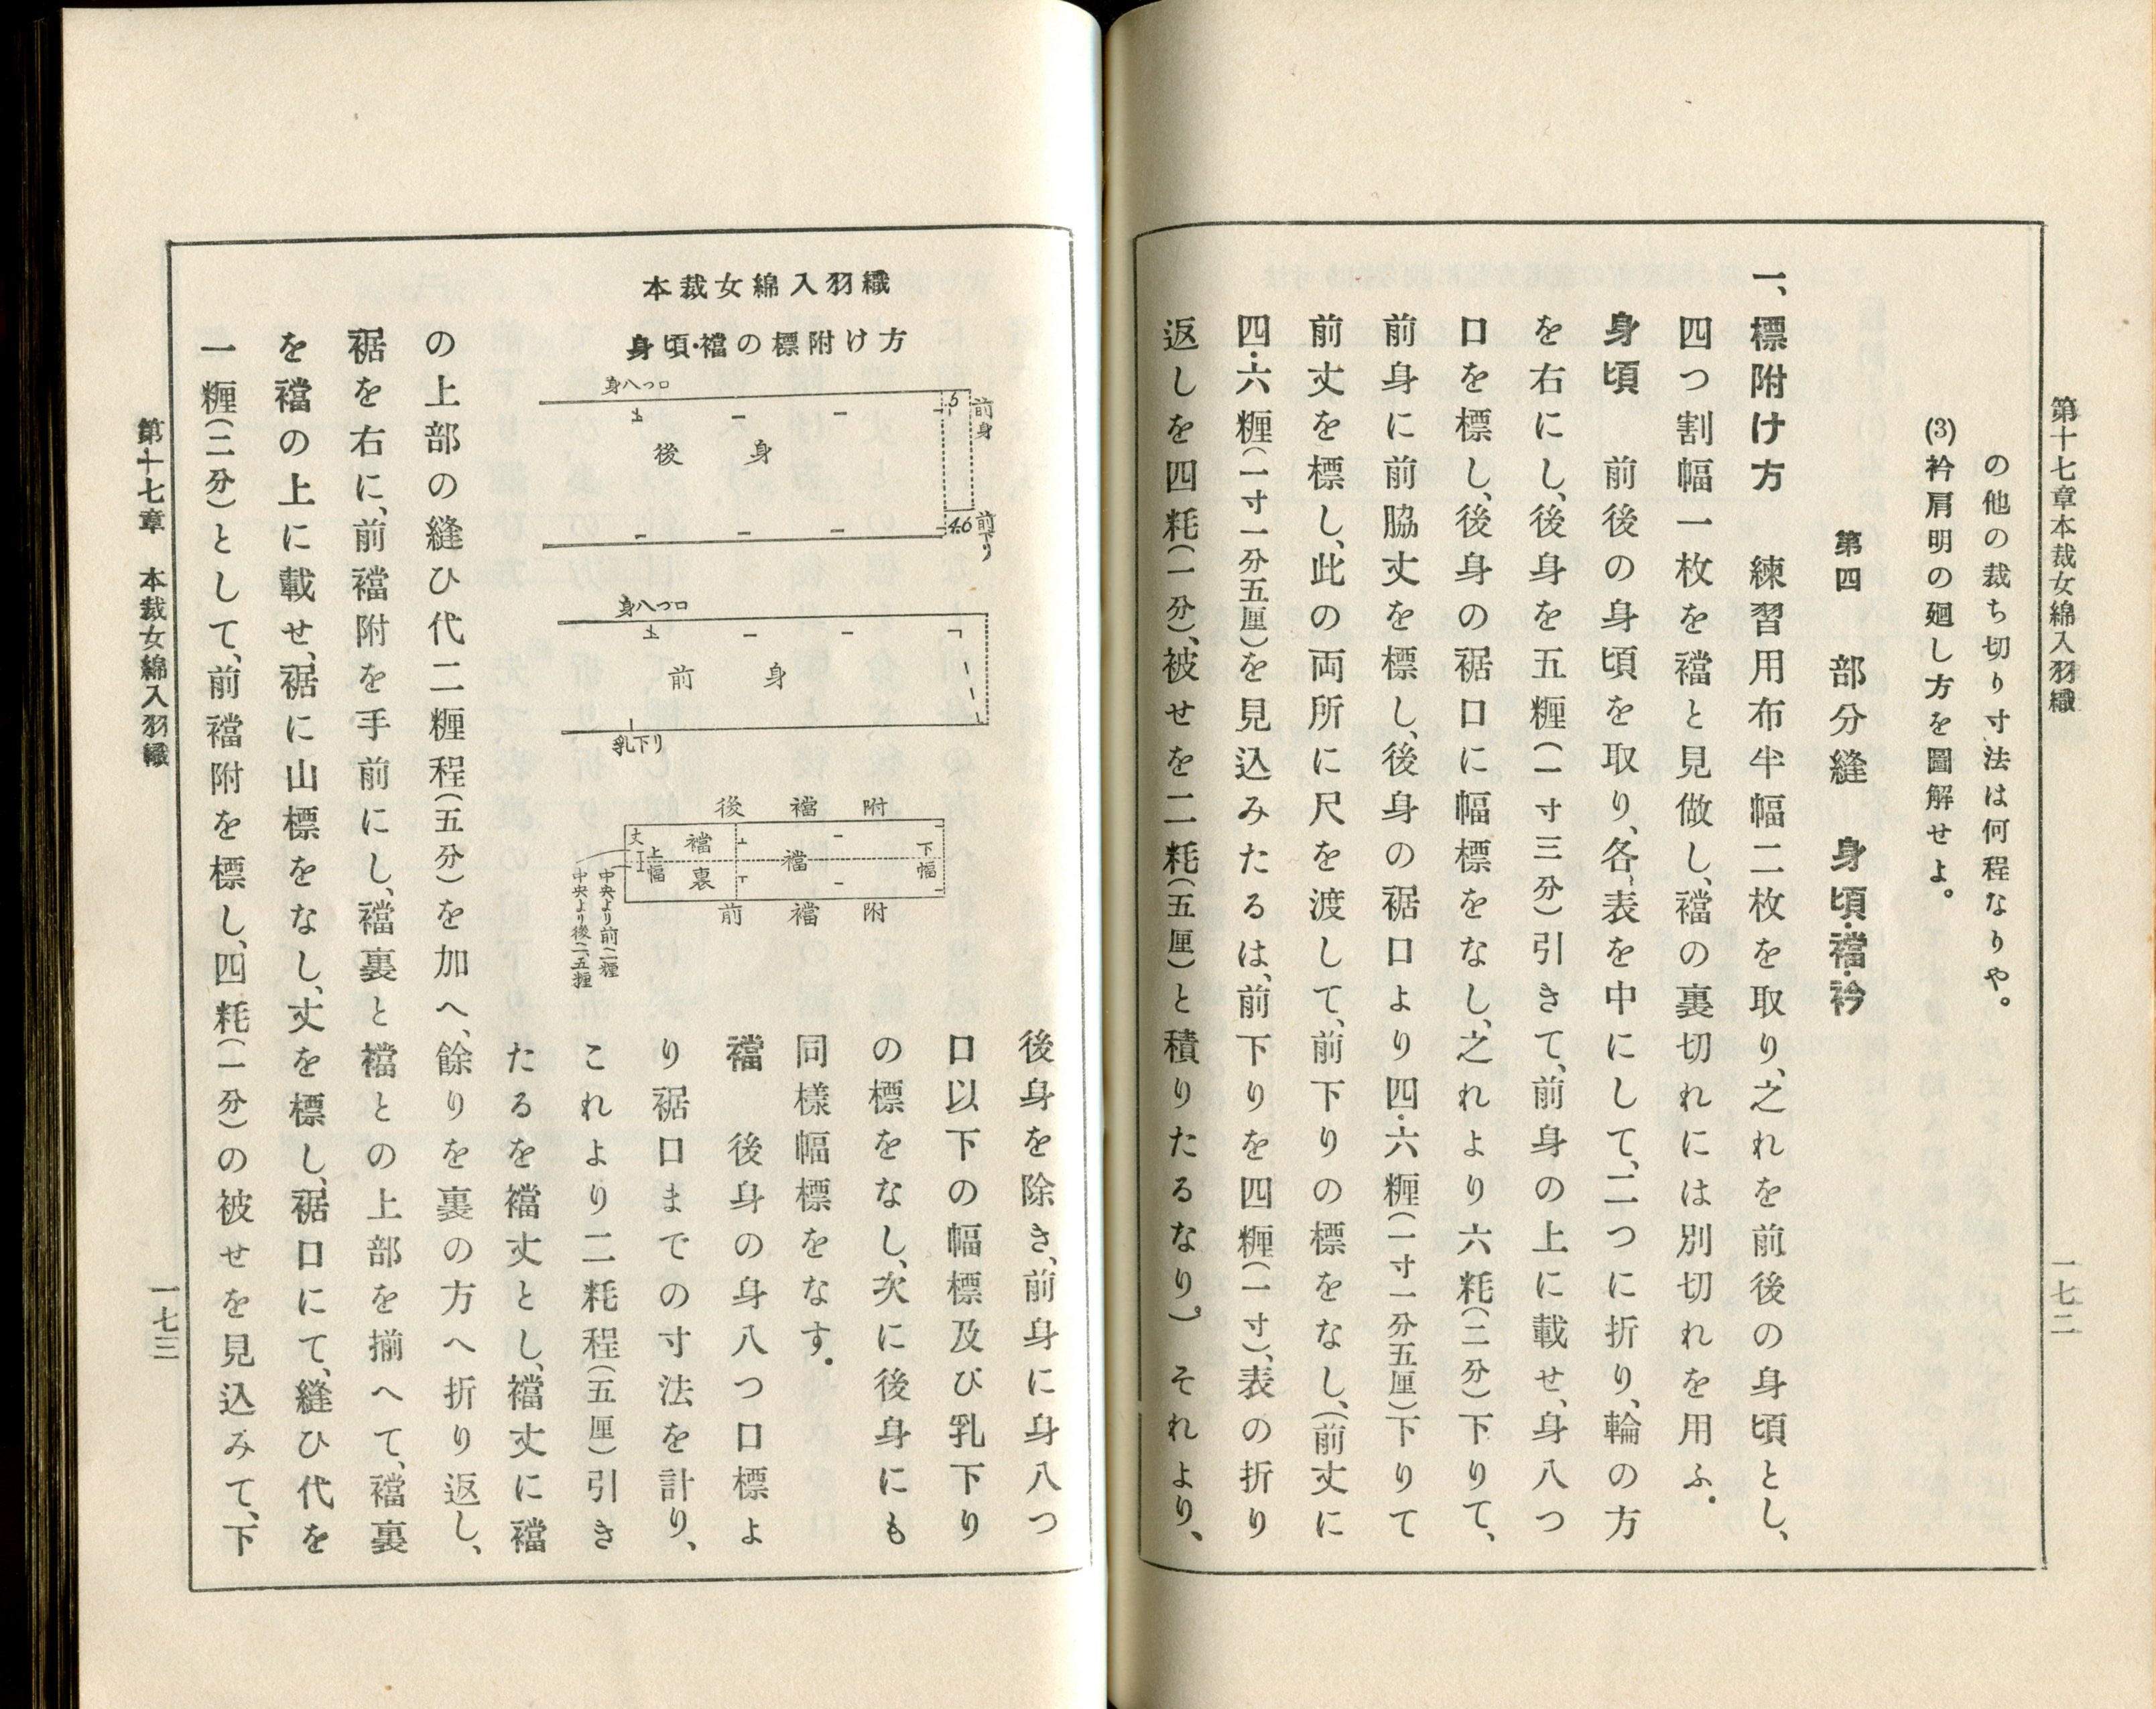 第十七章本裁女綿入羽織
一七二
の他の裁ち切り寸法は何程なりや。
(3)衿肩明の廻し方を圖解せよ。
第四 部分縫 身頃・襠・衿
一、標附け方 練習用布半幅二枚を取り、之れを前後の身頃とし、
四つ割幅一枚を襠と見做し、襠の裏切れには別切れを用ふ。
身頃 前後の身頃を取り、各〻表を中にして、二つに折り、輪の方
を右にし、後身を五糎(一寸三分)引きて、前身の上に載せ、身八つ
口を標し、後身の裾口に幅標をなし、之れより六粍(二分)下りて、
前身に前脇丈を標し、後身の裾口より四・六糎(一寸一分五厘)下りて
前丈を標し、此の両所に尺を渡して、前下りの標をなし、(前丈に
四・六糎(一寸一分五厘)を見込みたるは、前下りを四糎(一寸)、表の折り
返しを四粍(一分)、被せを二粍(五厘)と積りたるなり。) それより、
本裁女綿入羽織
身頃・襠の標附け方
身八つ口
後身
前身
6
4.6
前下り
身八つ口
前身
乳下り
後襠附
丈
上幅
襠裏
襠
下幅
前襠附
中央より前二糎
中央より後二、五糎
後身を除き、前身に身八つ
口以下の幅標及び乳下り
の標をなし、次に後身にも
同様幅標をなす。
襠 後身の身八つ口標よ
り裾口までの寸法を計り、
これより二粍程(五厘)引き
たるを襠丈とし、襠丈に襠
の上部の縫ひ代二糎程(五分)を加へ、餘りを裏の方へ折り返し、
裾を右に、前襠附を手前にし、襠裏と襠との上部を揃へて、襠裏
を襠の上に載せ、裾に山標をなし、丈を標し、裾口にて、縫ひ代を
一糎(二分)として、前襠附を標し、四粍(一分)の被せを見込みて、下
第十七章 本裁女綿入羽織
一七三